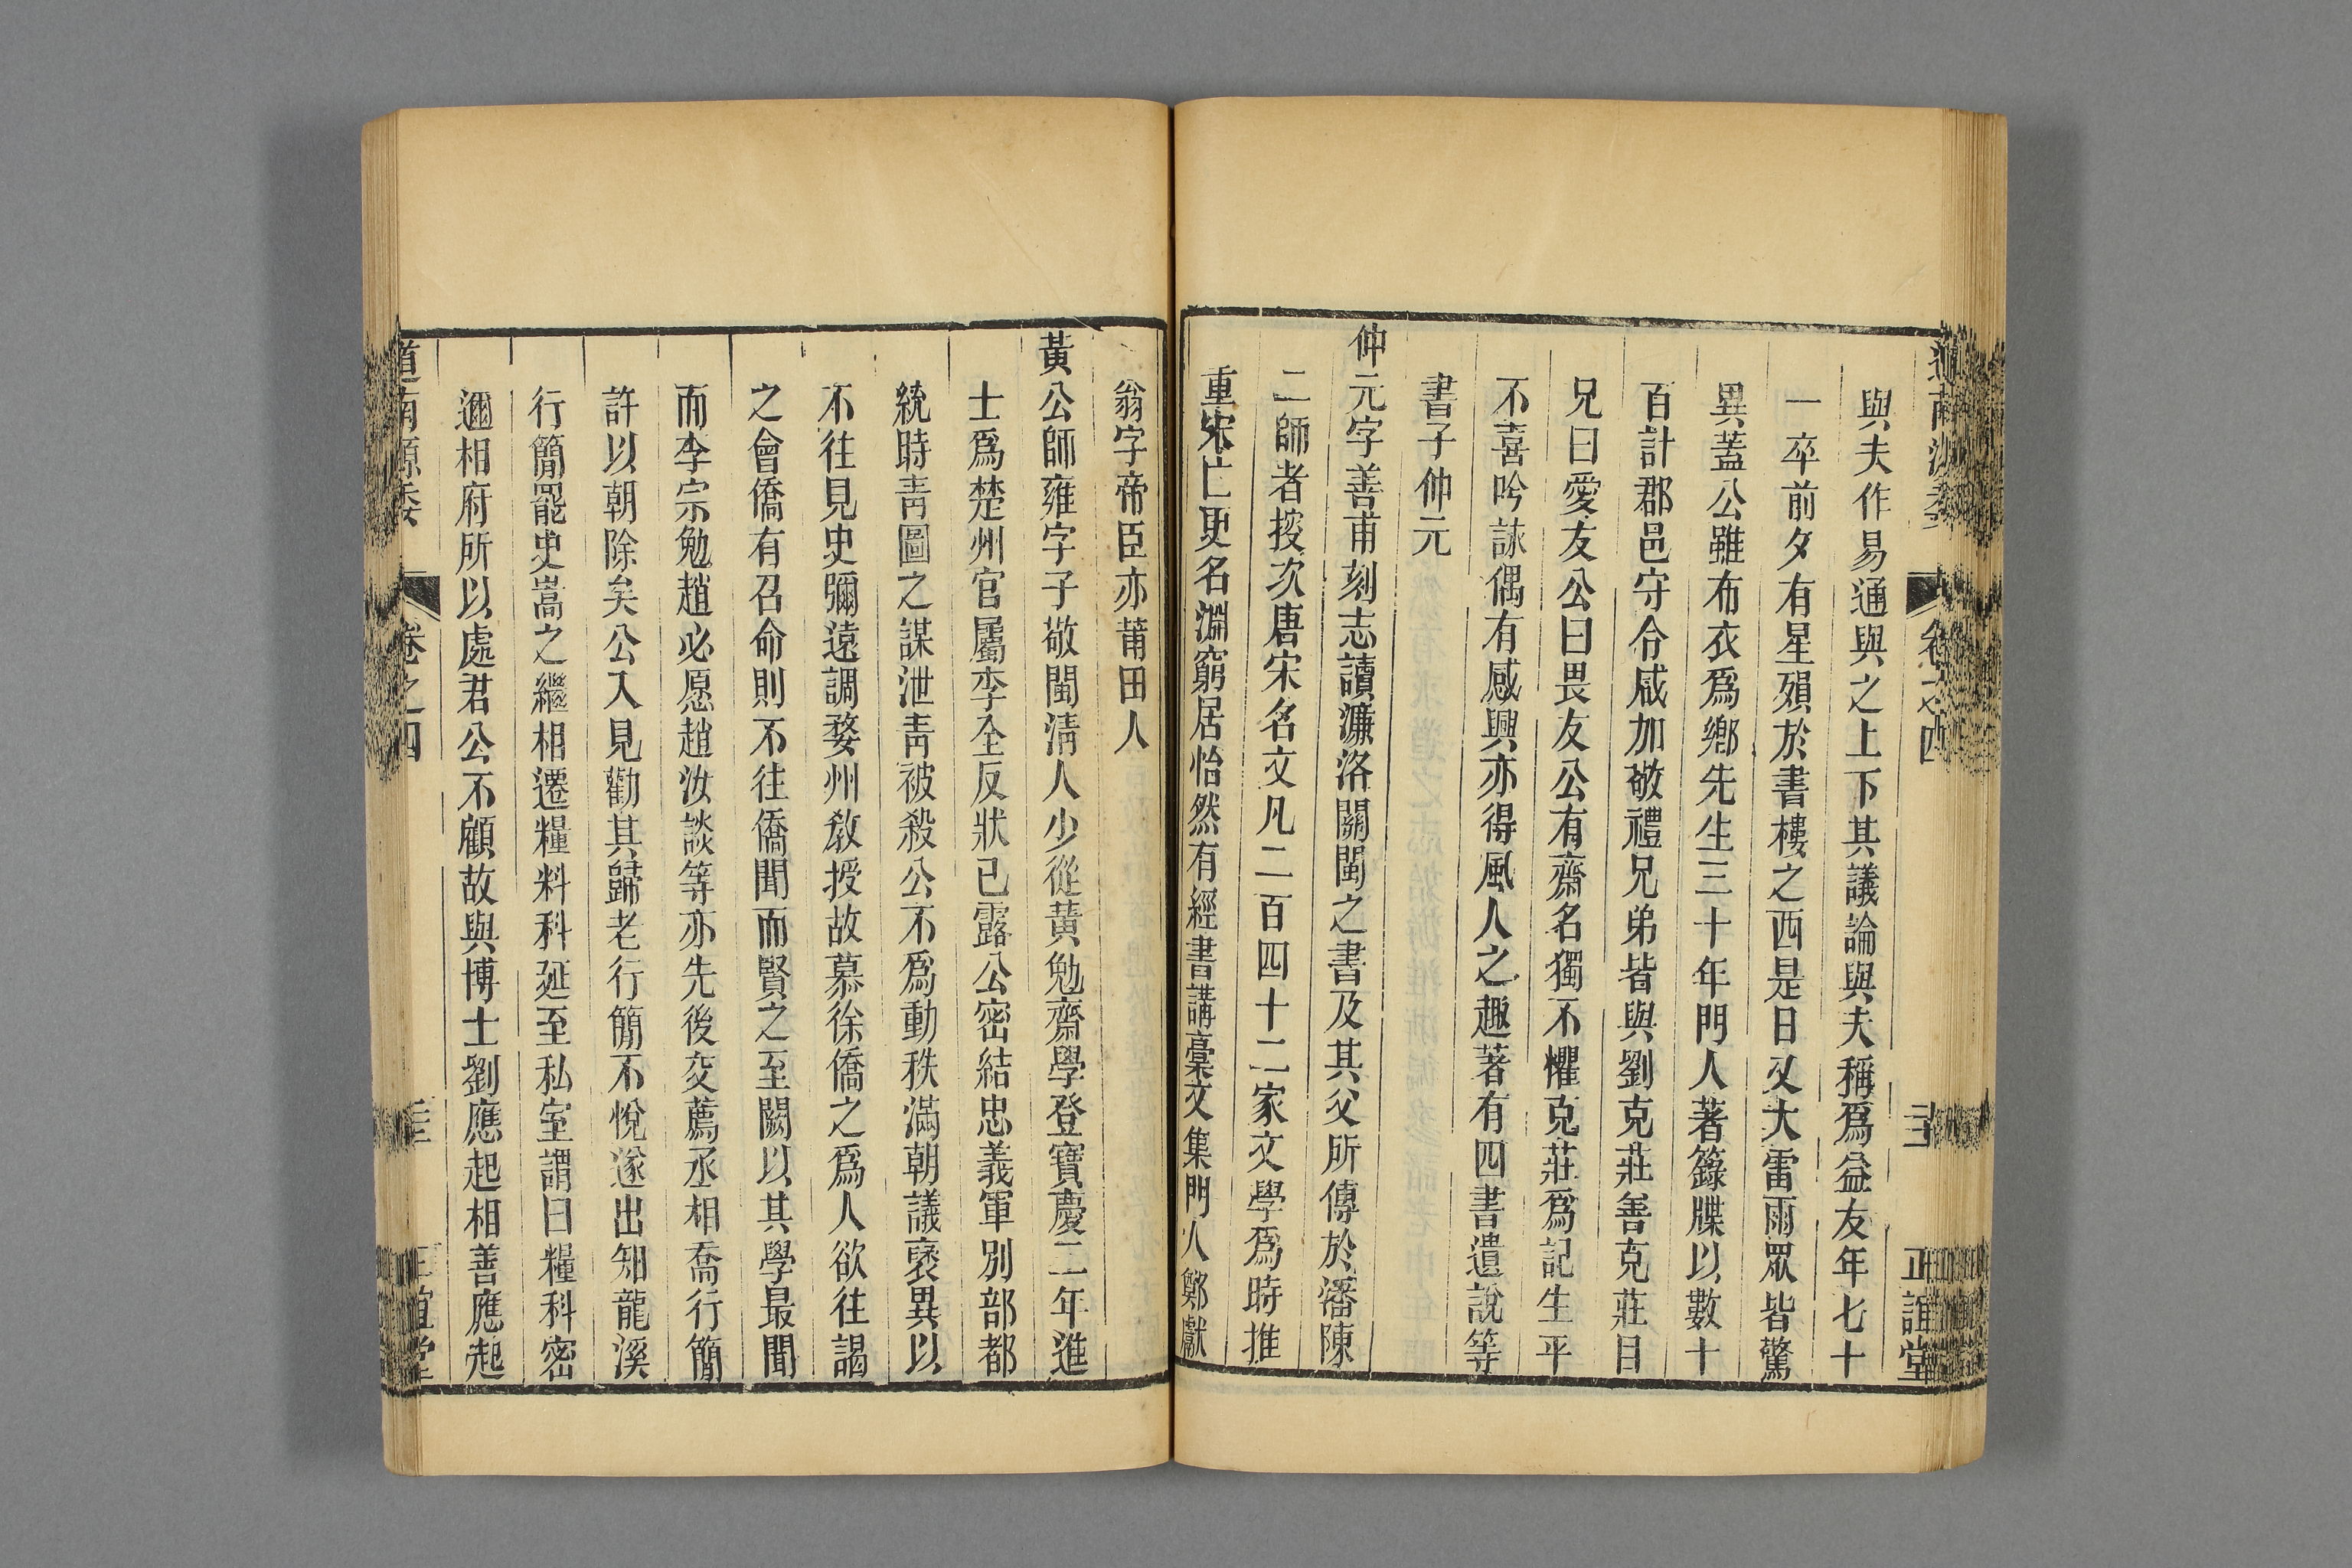 道南源委
卷之四
正誼堂
與夫作易通與之上下其議論與夫稱爲益友年七十
一卒前夕有星殞於書樓之西是日又大雷雨眾皆驚
異蓋公雖布衣爲鄉先生三十年門人著籙牒以數十
百計郡邑守令咸加敬禮兄弟皆與劉克莊善克莊目
兄曰愛友公曰畏友公有齋名獨不懼克莊爲記生平
不喜吟詠偶有感興亦得風人之趣著有四書遺說等
書子仲元
仲元字善甫刻志讀濂洛關閩之書及其父所傳於潘陳
二師者按次唐宋名文凡二百四十二家文學爲時推
重宋亡更名淵窮居怡然有經書講稾文集門人鄭獻
翁字帝臣亦莆田人
黃公師雍字子敬閩淸人少從黃勉齋學登寶慶二年進
士爲楚州官屬李全反狀已露公密結忠義軍別部都
統時靑圖之謀泄靑被殺公不爲動秩滿朝議褒異以
不往見史彌遠調婺州敎授故慕徐僑之爲人欲往謁
之會僑有召命則不往僑聞而賢之至闕以其學最聞
而李宗勉趙必愿趙汝談等亦先後交薦丞相喬行簡
許以朝除矣公入見勸其歸老行簡不悅遂出知龍溪
行簡罷史嵩之繼相遷糧料科延至私室謂曰糧科密
邇相府所以處君公不顧故與博士劉應起相善應起
道南源委
卷之四
正誼堂